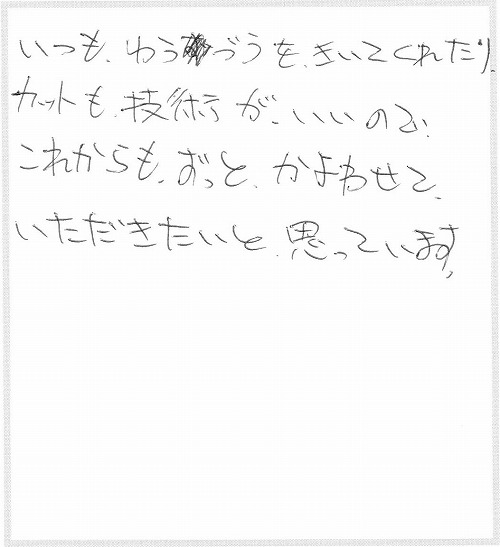 いつも、わうづうを、きいてくれたり、
カットも、技術が、いいので、
これからも、ずっと、かよわせて、
いただきたいと、思っています、